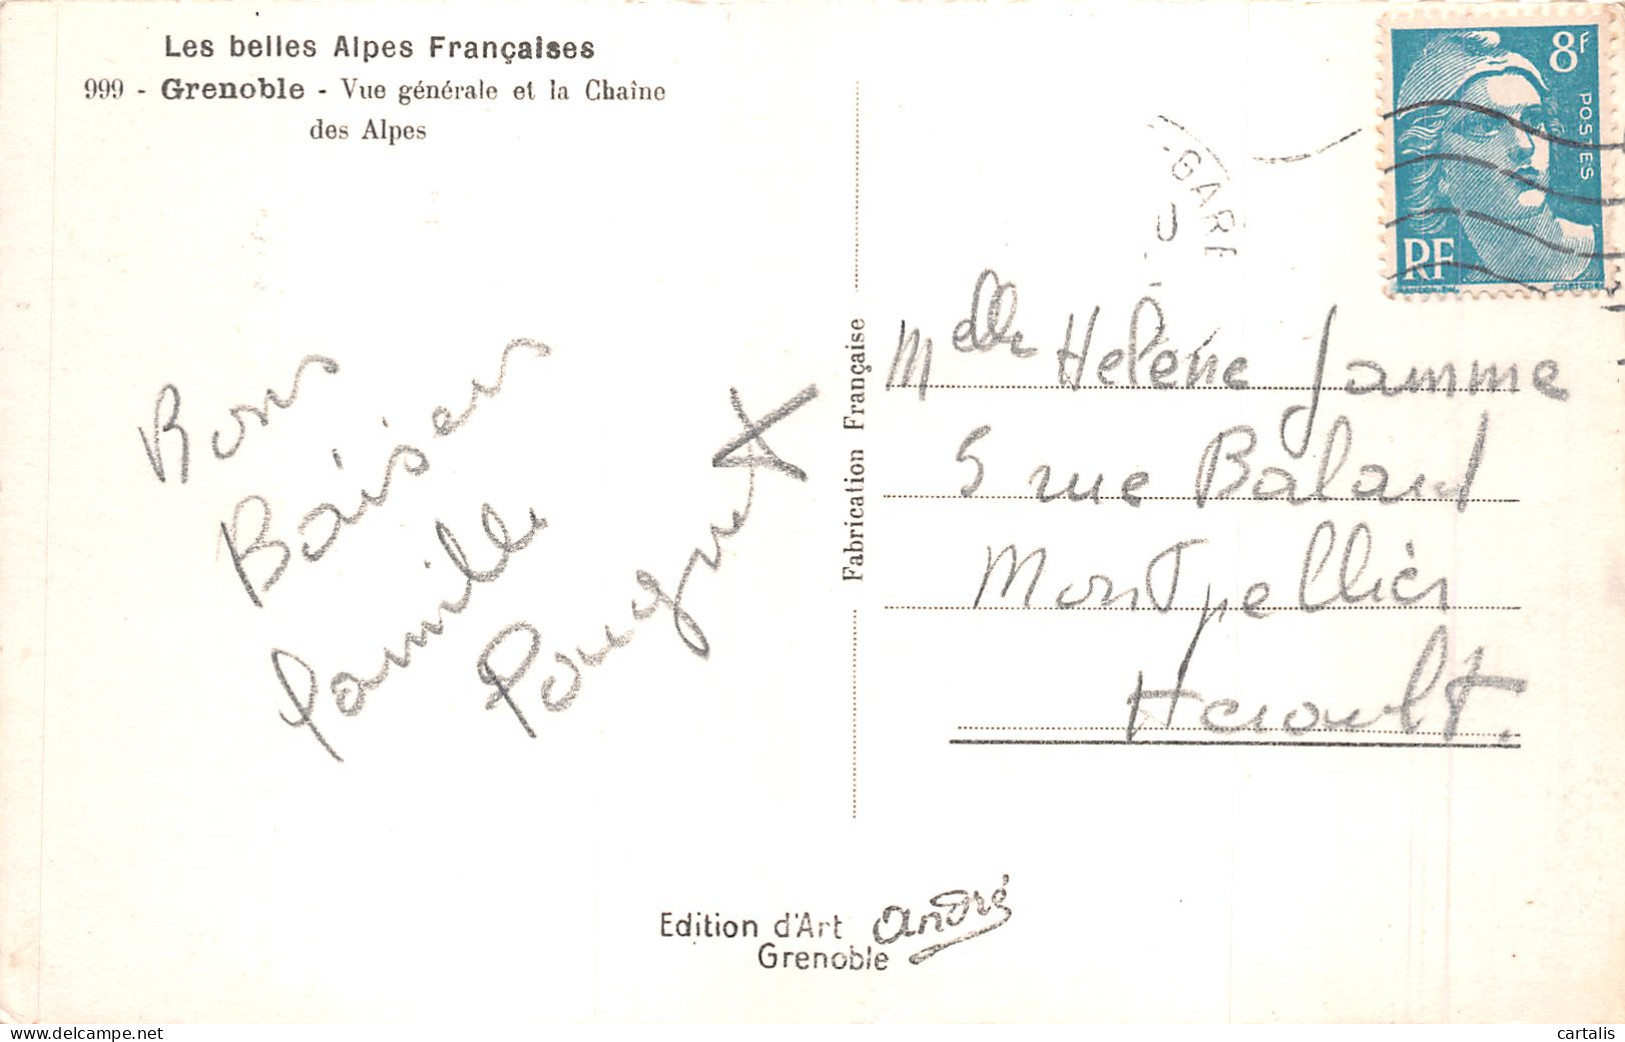 Les belles Alpes Françaises
999 - Grenoble - Vue générale et la Chaîne
des Alpes
8F
POSTES
RF
GARE
Bons
Baisers
famille
Fabrication Française
Melle Helène Jamme
5 rue Balard
Montpellier
Herault.
Edition d'Art André
Grenoble
www.delcampe.net
cartalis